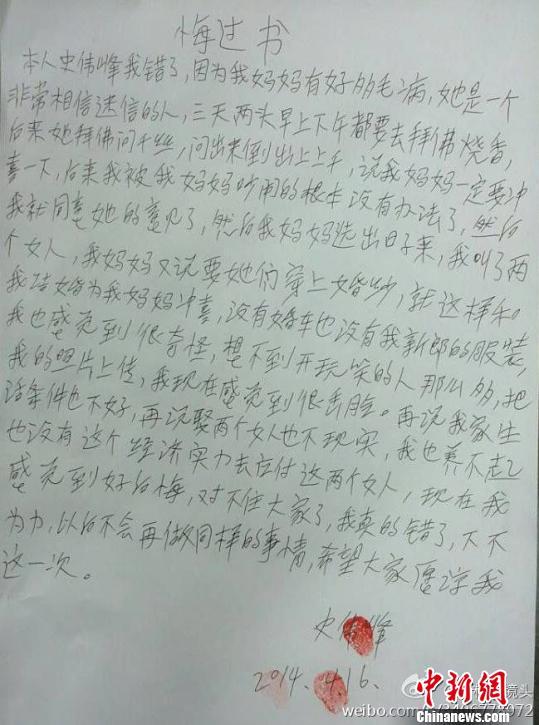 悔过书
本人史伟峰我错了,因为我妈妈有好多毛病,她是一个
非常相信迷信的人,三天两头早上下午都要去拜佛烧香,
后来她拜佛问千丝,问出来倒出上上千,说我妈妈一定要冲
喜一下,后来我被我妈妈吵闹的根本没有办法了,然后
我就同意她的意见了,然后我妈妈选出日子来,我叫了两
个女人,我妈妈又说要她们穿上婚纱,就这样和
我结婚为我妈妈冲喜,没有婚车也没有我新郎的服装,
我也感觉到很奇怪,想不到开玩笑的人那么多,把
我的照片上传,我现在感觉到很丢脸。再说我家生
活条件也不好,再说娶两个女人也不现实,我也养不起
也没有这个经济实力去应付这两个女人,现在我
感觉到好后悔,对不住大家了,我真的错了,下不
为力,以后不会再做同样的事情,希望大家原谅我
这一次。
史伟峰
2014.4.16.
中新网
镜头
weibo.com/
chinanews.com